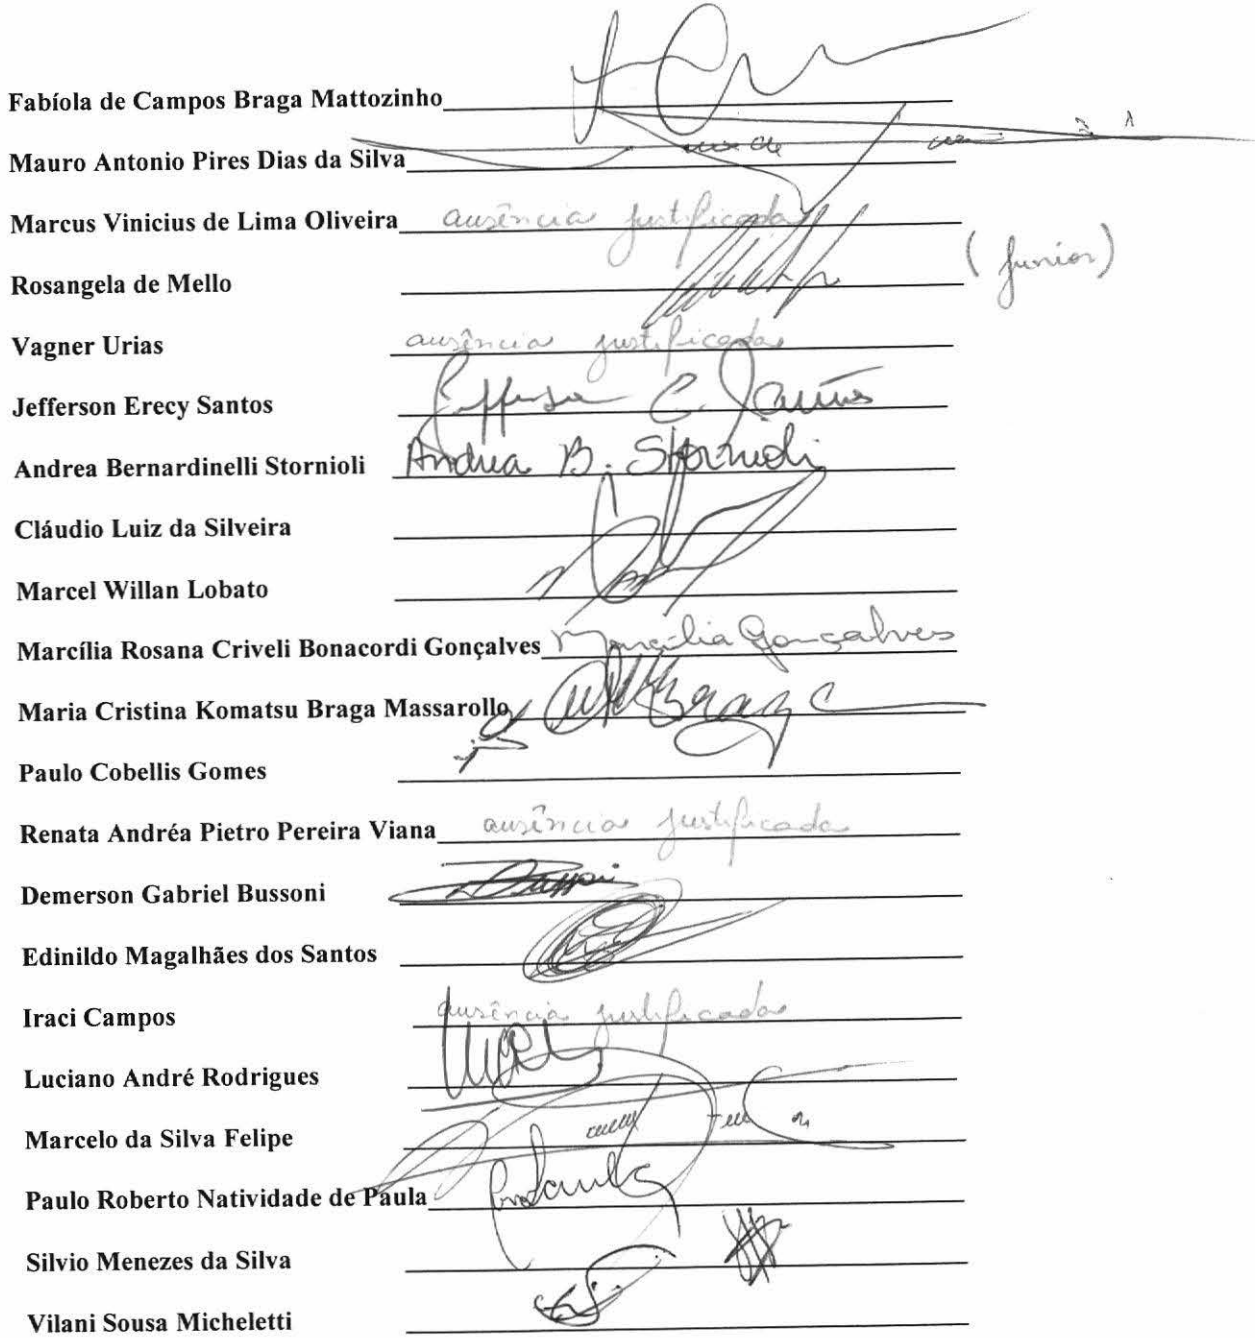 Fabíola de Campos Braga Mattozinho
Mauro Antonio Pires Dias da Silva
Marcus Vinicius de Lima Oliveira ausência justificada
Rosangela de Mello (Junior)
Vagner Urias ausência justificada
Jefferson Erecy Santos Jefferson E. Santos
Andrea Bernardinelli Stornioli Andrea B. Stornioli
Cláudio Luiz da Silveira
Marcel Willan Lobato
Marcília Rosana Criveli Bonacordi Gonçalves Marcília Gonçalves
Maria Cristina Komatsu Braga Massarollo
Paulo Cobellis Gomes
Renata Andréa Pietro Pereira Viana ausência justificada
Demerson Gabriel Bussoni
Edinildo Magalhães dos Santos
Iraci Campos ausência justificada
Luciano André Rodrigues
Marcelo da Silva Felipe
Paulo Roberto Natividade de Paula
Silvio Menezes da Silva
Vilani Sousa Micheletti